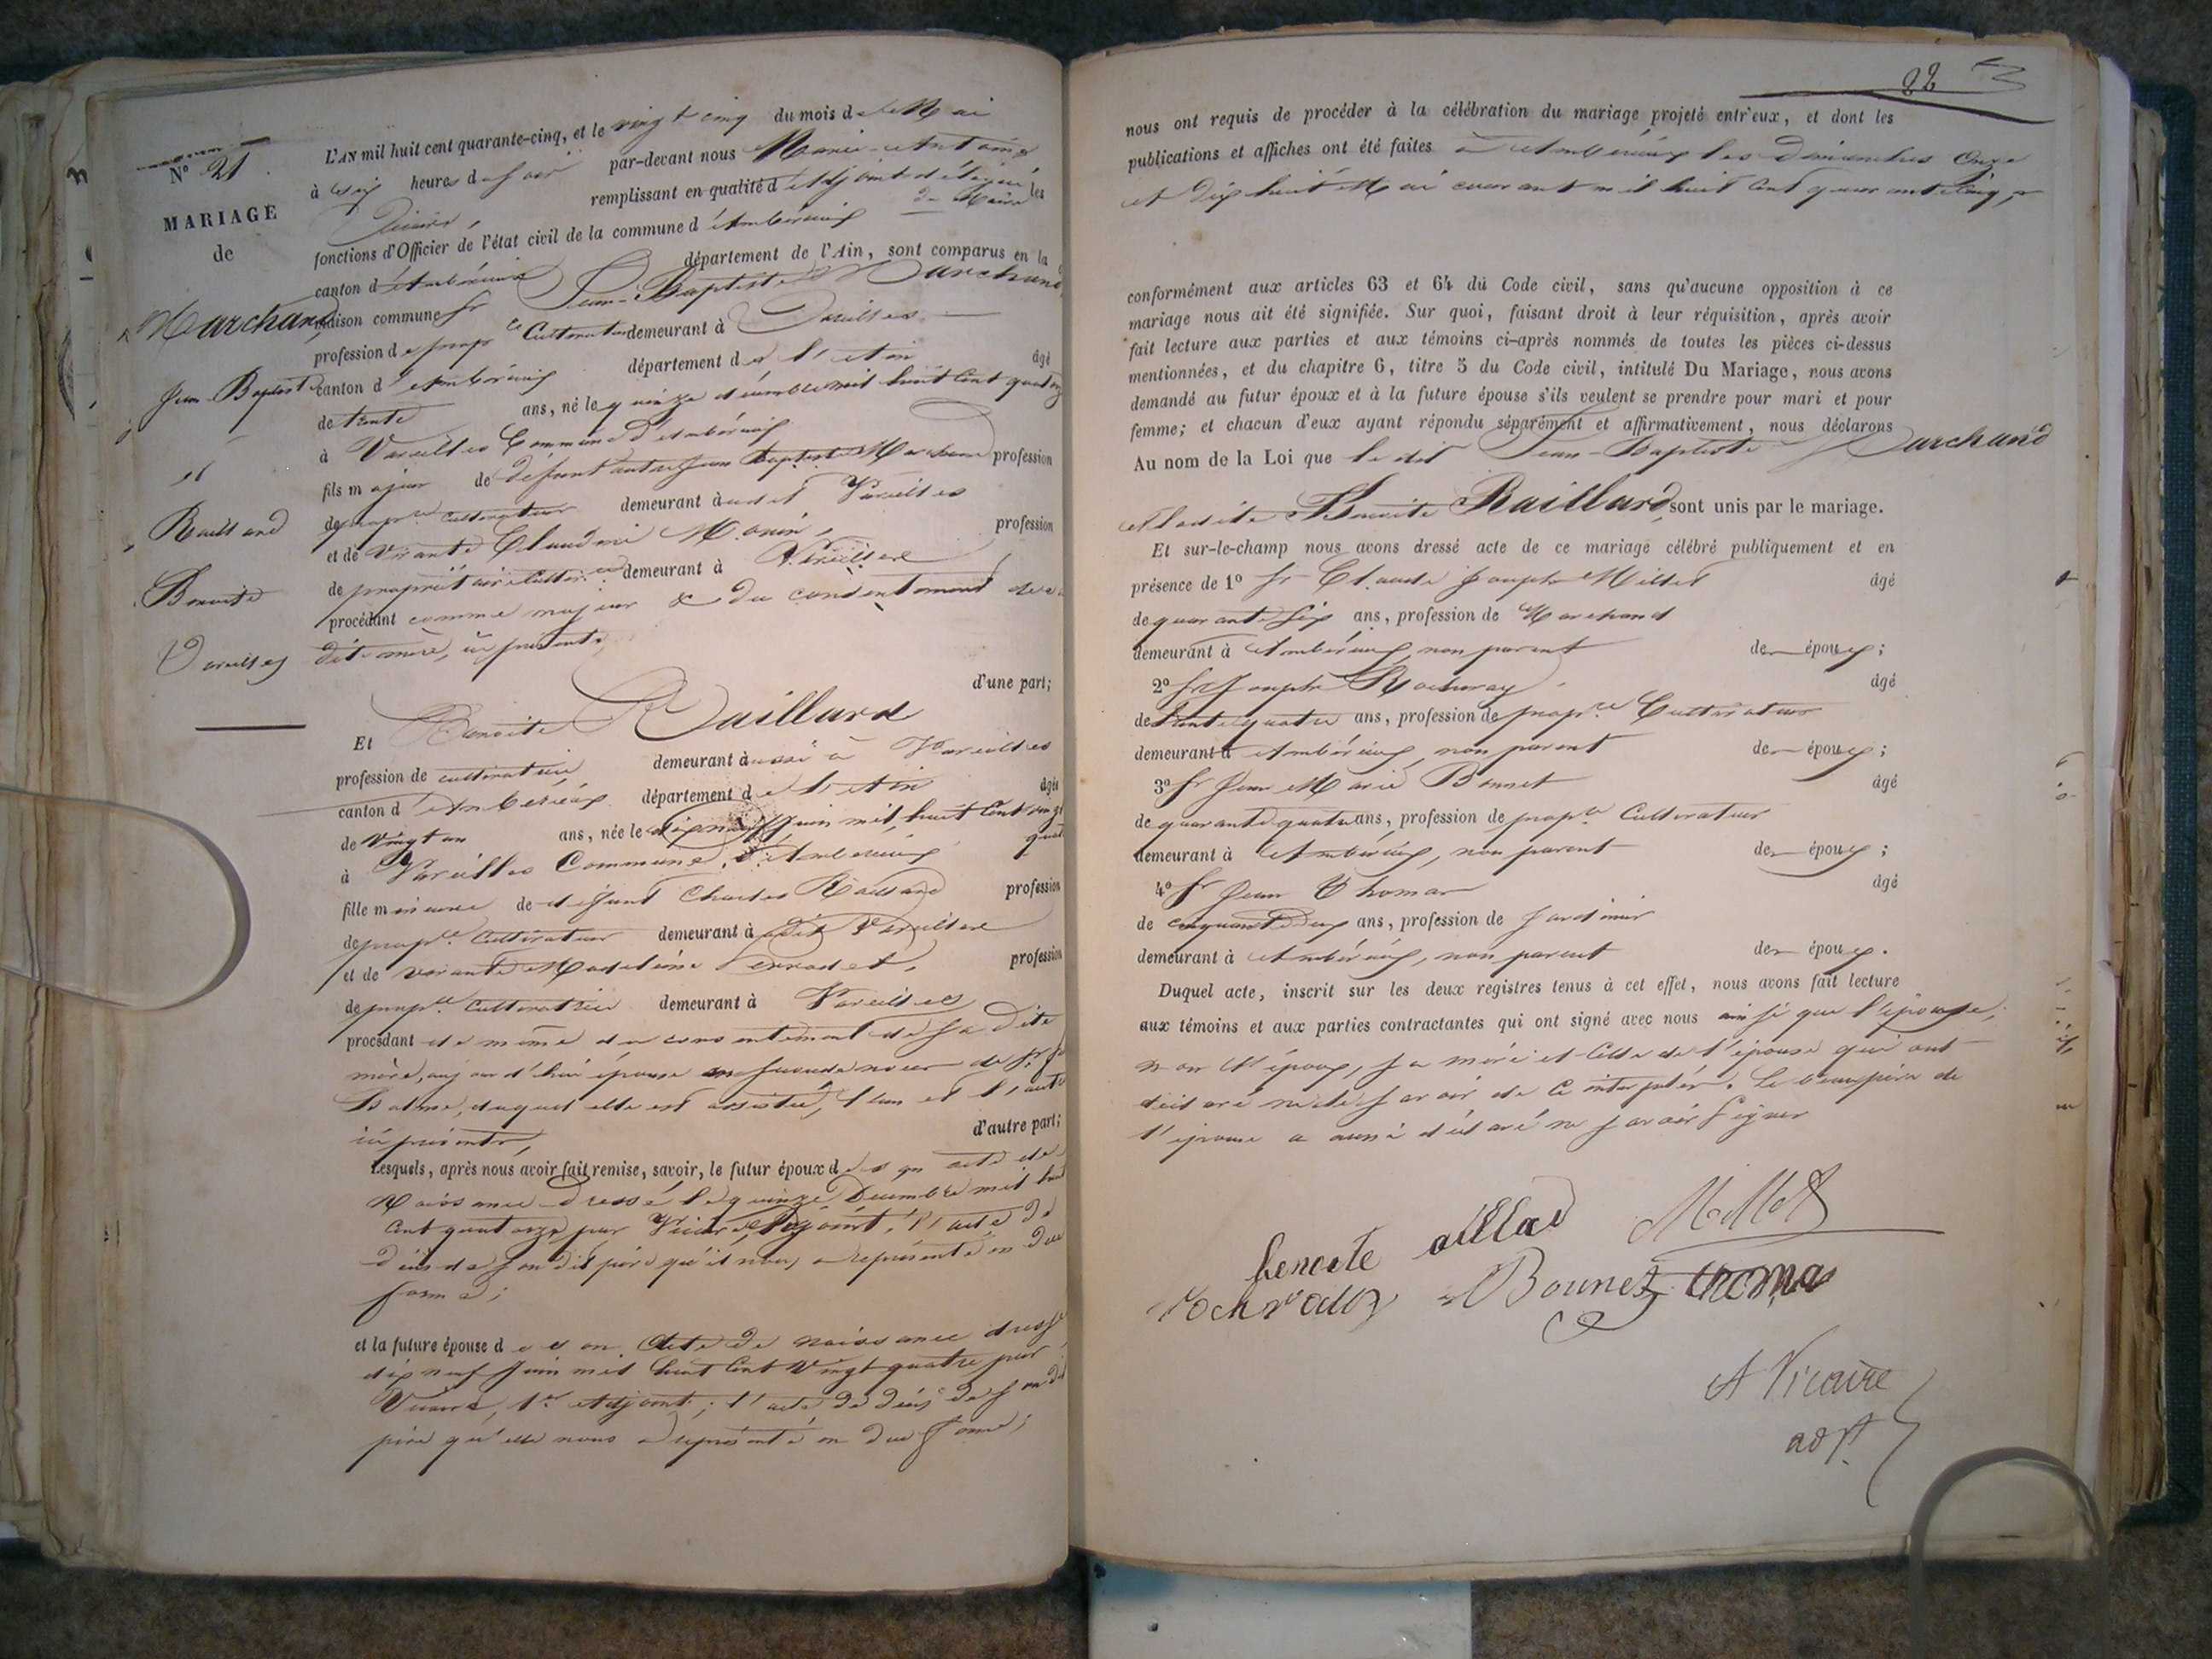 N° 21
MARIAGE
de
Marchand
Jean-Baptiste
et
Raillard
Benoite
Vareilles
L'AN mil huit cent quarante-cinq, et le vingt cinq du mois de Mai
à six heures du soir par-devant nous Marie-Antoine
Vicaire, remplissant en qualité d'Adjoint délégué du Maire les
fonctions d'Officier de l'état civil de la commune d'Ambérieux
canton d'Ambérieux département de l'Ain, sont comparus en la
maison commune Sr Jean-Baptiste Marchand
profession de propre Cultivateur demeurant à Vareilles
canton d'Ambérieux département de l'Ain âgé
de trente ans, né le quinze décembre mil huit Cent quatorze
à Vareilles Commune d'Ambérieux
fils majeur de défunt autre Jean Baptiste Marchand profession
de propre Cultivateur demeurant audit Vareilles
et de vivante Claudine Monin, profession
de propriétaire Cultivce demeurant à Vareilles
procédant comme majeur & du consentement de sa
dite mère, ici présente,
d'une part;
Et Benoite Raillard
profession de cultivatrice demeurant aussi à Vareilles
canton d'Ambérieux département de l'Ain âgée
de Vingt un ans, née le dix neuf Juin mil huit Cent vingt quatre
à Vareilles Commune d'Ambérieux
fille mineure de défunt Charles Raillard profession
de propre Cultivateur demeurant audit Vareilles
et de vivante Madeleine Perrodet, profession
de propre Cultivatrice demeurant à Vareilles
procédant de même du consentement de sa dite
mère, aujourd'hui épouse en secondes noces de Sr
Balme, duquel elle est assistée, l'un et l'autre
ici présents,
d'autre part;
Lesquels, après nous avoir fait remise, savoir, le futur époux de son acte de
Naissance dressé le quinze Décembre mil huit
Cent quatorze, par Vicaire, Adjoint, l'acte de
décès de son dit père qu'il nous a représenté en due
forme;
et la future épouse de son Acte de naissance dressé
dix neuf Juin mil huit Cent Vingt quatre par
Vicaire, 1er Adjoint; l'acte de décès de son dit
père qu'elle nous a représenté en due forme;
22
nous ont requis de procéder à la célébration du mariage projeté entr'eux, et dont les
publications et affiches ont été faites à Ambérieux les Dimanches Onze
et Dix huit Mai courant mil huit Cent quarante cinq,
conformément aux articles 63 et 64 du Code civil, sans qu'aucune opposition à ce
mariage nous ait été signifiée. Sur quoi, faisant droit à leur réquisition, après avoir
fait lecture aux parties et aux témoins ci-après nommés de toutes les pièces ci-dessus
mentionnées, et du chapitre 6, titre 5 du Code civil, intitulé Du Mariage, nous avons
demandé au futur époux et à la future épouse s'ils veulent se prendre pour mari et pour
femme; et chacun d'eux ayant répondu séparément et affirmativement, nous déclarons
Au nom de la Loi que le dit Jean-Baptiste Marchand
et ladite Benoite Raillard, sont unis par le mariage.
Et sur-le-champ nous avons dressé acte de ce mariage célébré publiquement et en
présence de 1° Sr Claude Joseph Millet âgé
de quarante six ans, profession de Marchand
demeurant à Ambérieux, non parent des époux;
2° Sr Joseph Rochray âgé
de trente quatre ans, profession de propre Cultivateur
demeurant à Ambérieux, non parent des époux;
3° Sr Jean Marie Bonnet âgé
de quarante quatre ans, profession de propre Cultivateur
demeurant à Ambérieux, non parent des époux;
4° Sr Jean Thomas âgé
de cinquante deux ans, profession de Jardinier
demeurant à Ambérieux, non parent des époux.
Duquel acte, inscrit sur les deux registres tenus à cet effet, nous avons fait lecture
aux témoins et aux parties contractantes qui ont signé avec nous ainsi que l'épouse,
non l'époux, sa mère et celle de l'épouse qui ont
déclaré ne le savoir de ce interpelés. Le beau père de
l'épouse a aussi déclaré ne savoir signer
benoite aillad Millet
Bonnet thoma
A Vicaire
adjt